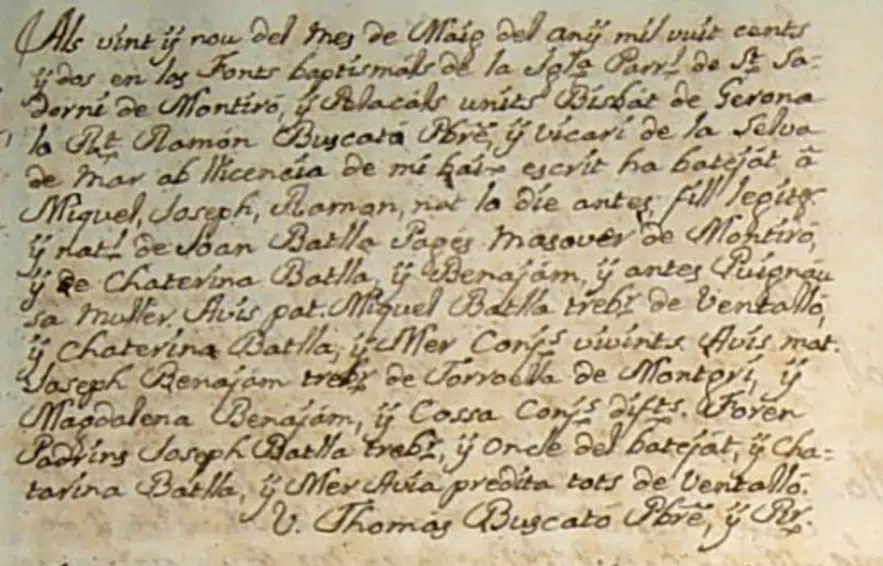 Als vint ÿ nou del mes de Maig del anÿ mil vuit cents
ÿ dos en las Fonts baptismáls de la Igla Parrl. de St. Sa-
dorní de Montiró, ÿ Palacáls units Bisbát de Gerona
lo Rt. Ramón Buscató Pbre, ÿ vicari de la Selva
de Mar ab llicencia de mi baix escrit ha batejat á
Miquel, Joseph, Ramon, nat lo die antes, fill legitm.
ÿ natl. de Joan Batlla Pagés Masovér de Montiró,
ÿ de Chaterina Batlla, ÿ Benajám, ÿ antes Puignáu
sa muller. Avis pat. Miquel Batlla trebr. de Ventalló,
ÿ Chaterina Batlla, ÿ Mer Conjs. vivints. Avis mat.
Joseph Benajám trebr. de Torroella de Montgrí, ÿ
Magdalena Benajám, ÿ Cossa Conjs. difts. Foren
Padrins Joseph Batlla trebr., ÿ oncle del bateját, ÿ Cha-
tarina Batlla, ÿ Mer Avia predita tots de Ventalló.
V. Thomás Buscató Pbre, ÿ Rr.